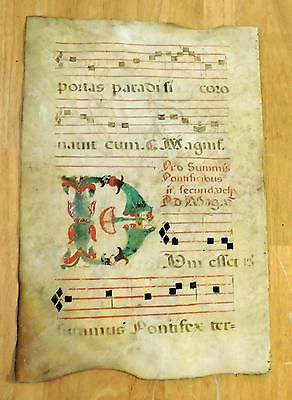 portas paradisi coro
nauit eum. Magnif.
Pro Summis
Pontificibus
in secund. vesp.
Ad Mag. a
Dum esset
summus Pontifex ter-